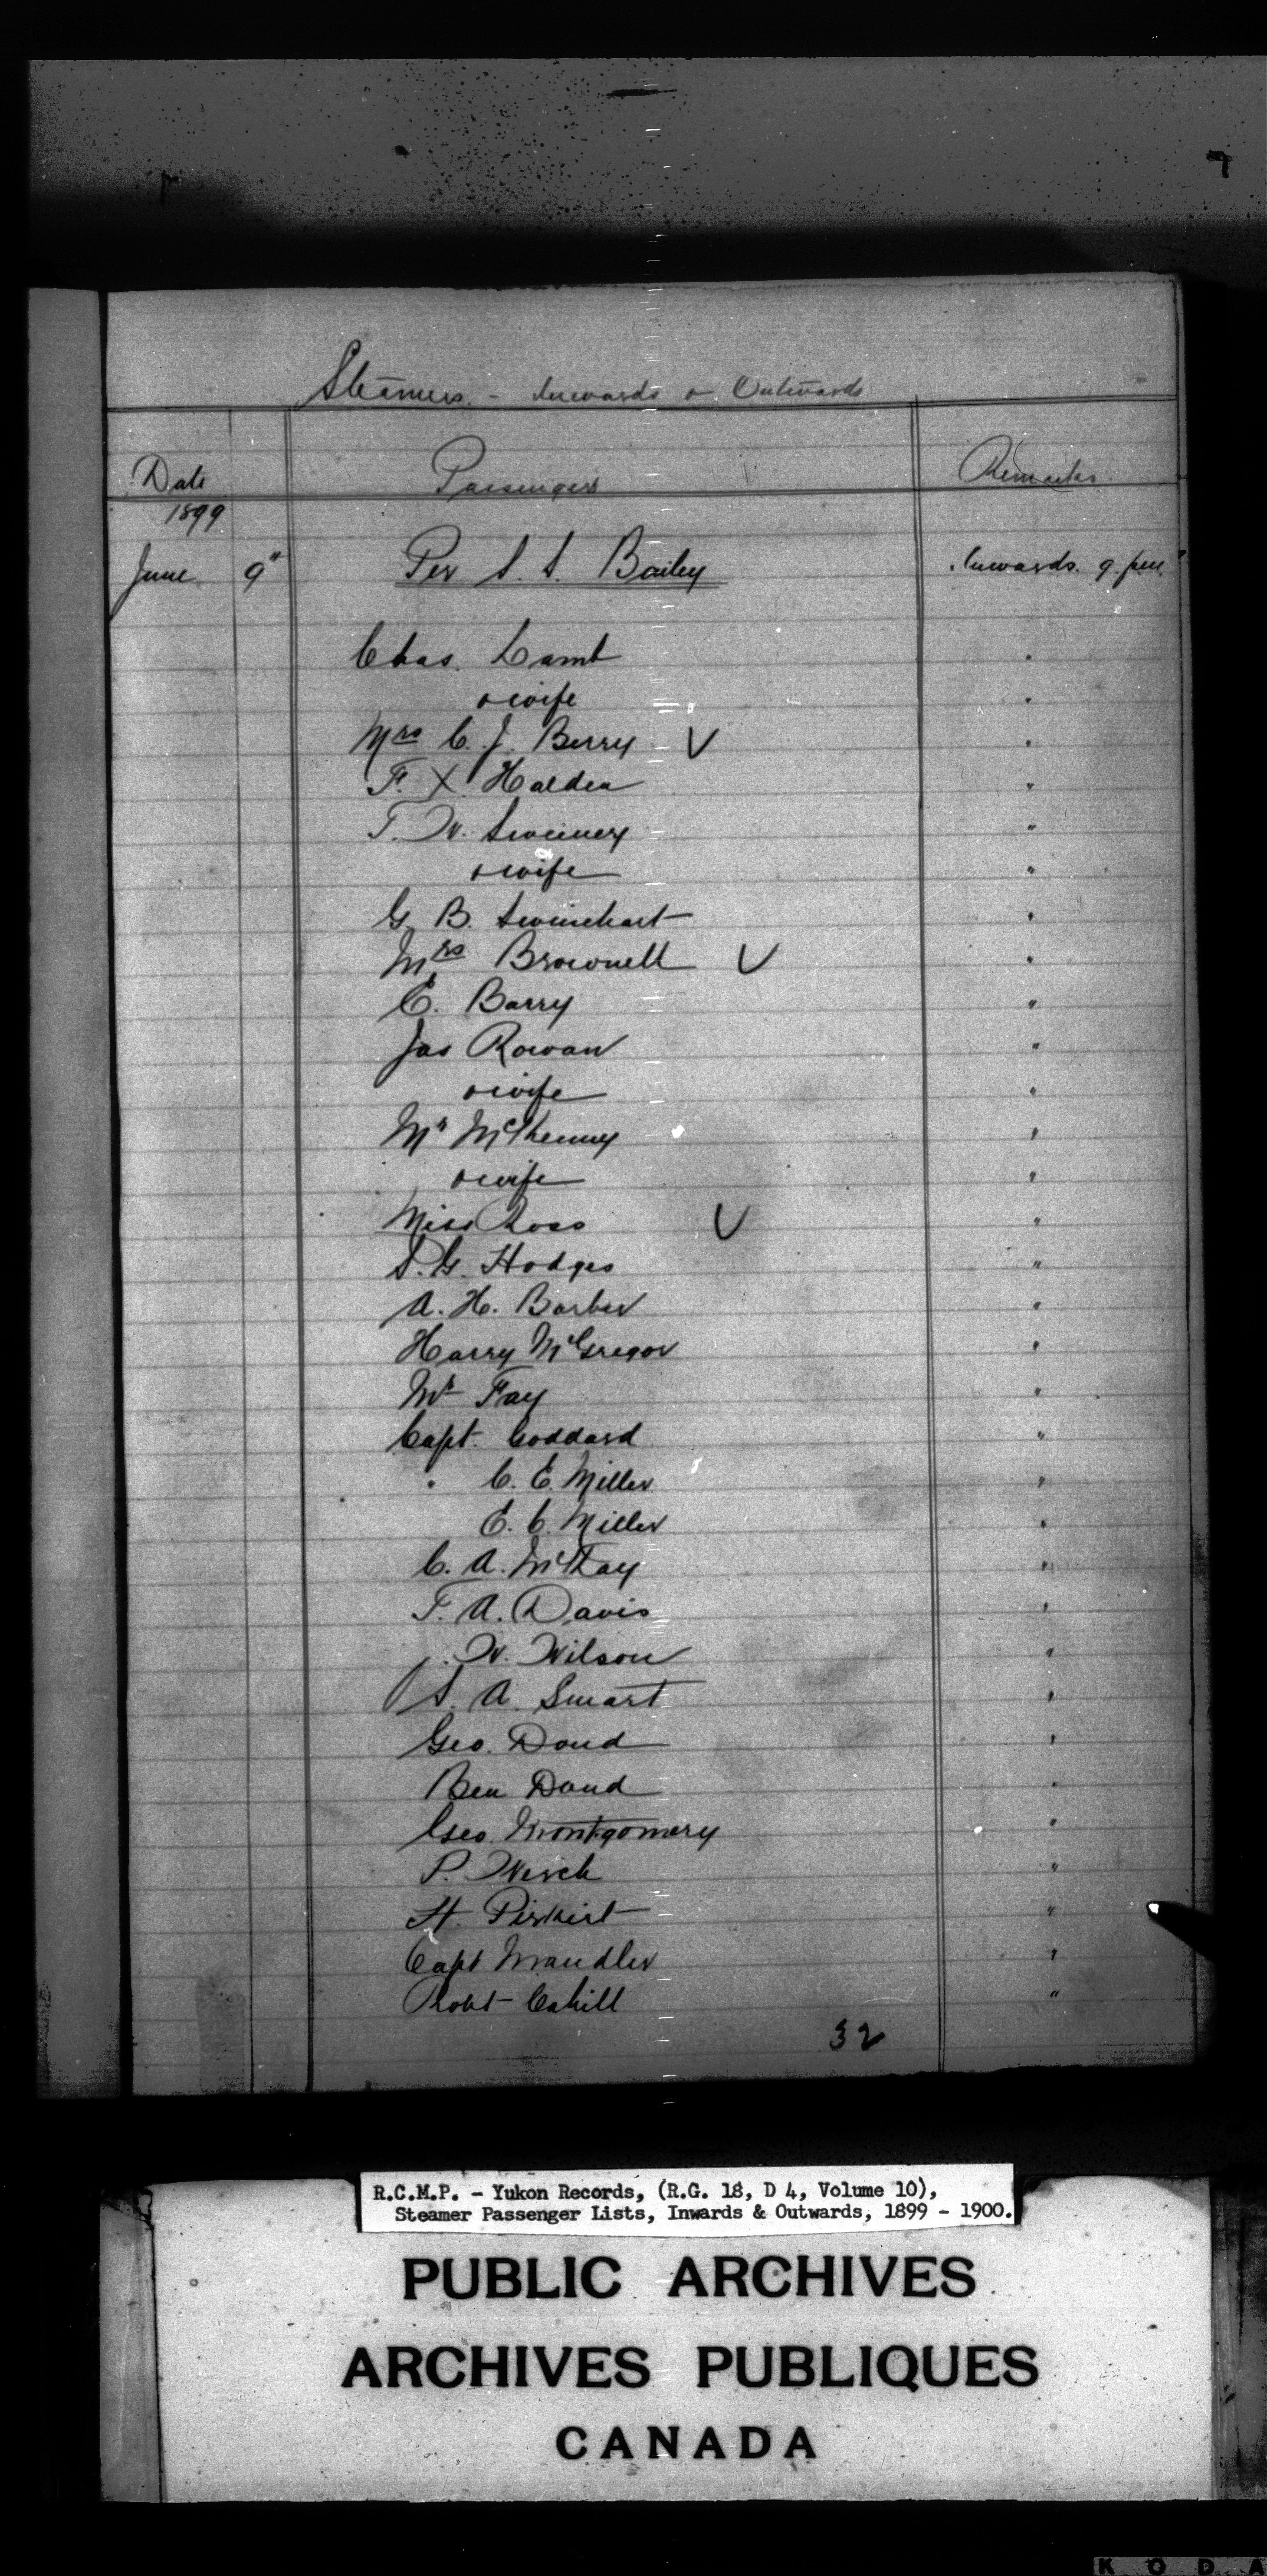 Steamers - Inwards & Outwards
Date Passengers Remarks
1899
June 9" Per S. S. Bailey Inwards. 9. p.m.
Chas. Lamb "
& wife "
Mrs C. J. Berry V "
F. X. Halden "
T. W. Sweeney "
& wife "
G. B. Swinehart "
Mrs Brownell V "
E. Barry "
Jas Rowan "
& wife "
Mr McKenny "
& wife "
Miss Ross V "
S. G. Hodges "
A. H. Barber "
Harry McGregor "
Mr Fay "
Capt. Goddard "
" C. E. Miller "
E. C. Miller "
C. A. McKay "
T. A. Davis "
J. W. Wilson "
S. A. Smart "
Geo. Doud "
Ben Doud "
Geo. Montgomery "
P. "
H. "
Capt Mandler "
Robt Cahill "
32
R.C.M.P. - Yukon Records, (R.G. 18, D 4, Volume 10),
Steamer Passenger Lists, Inwards & Outwards, 1899 - 1900.
PUBLIC ARCHIVES
ARCHIVES PUBLIQUES
CANADA
K O D A